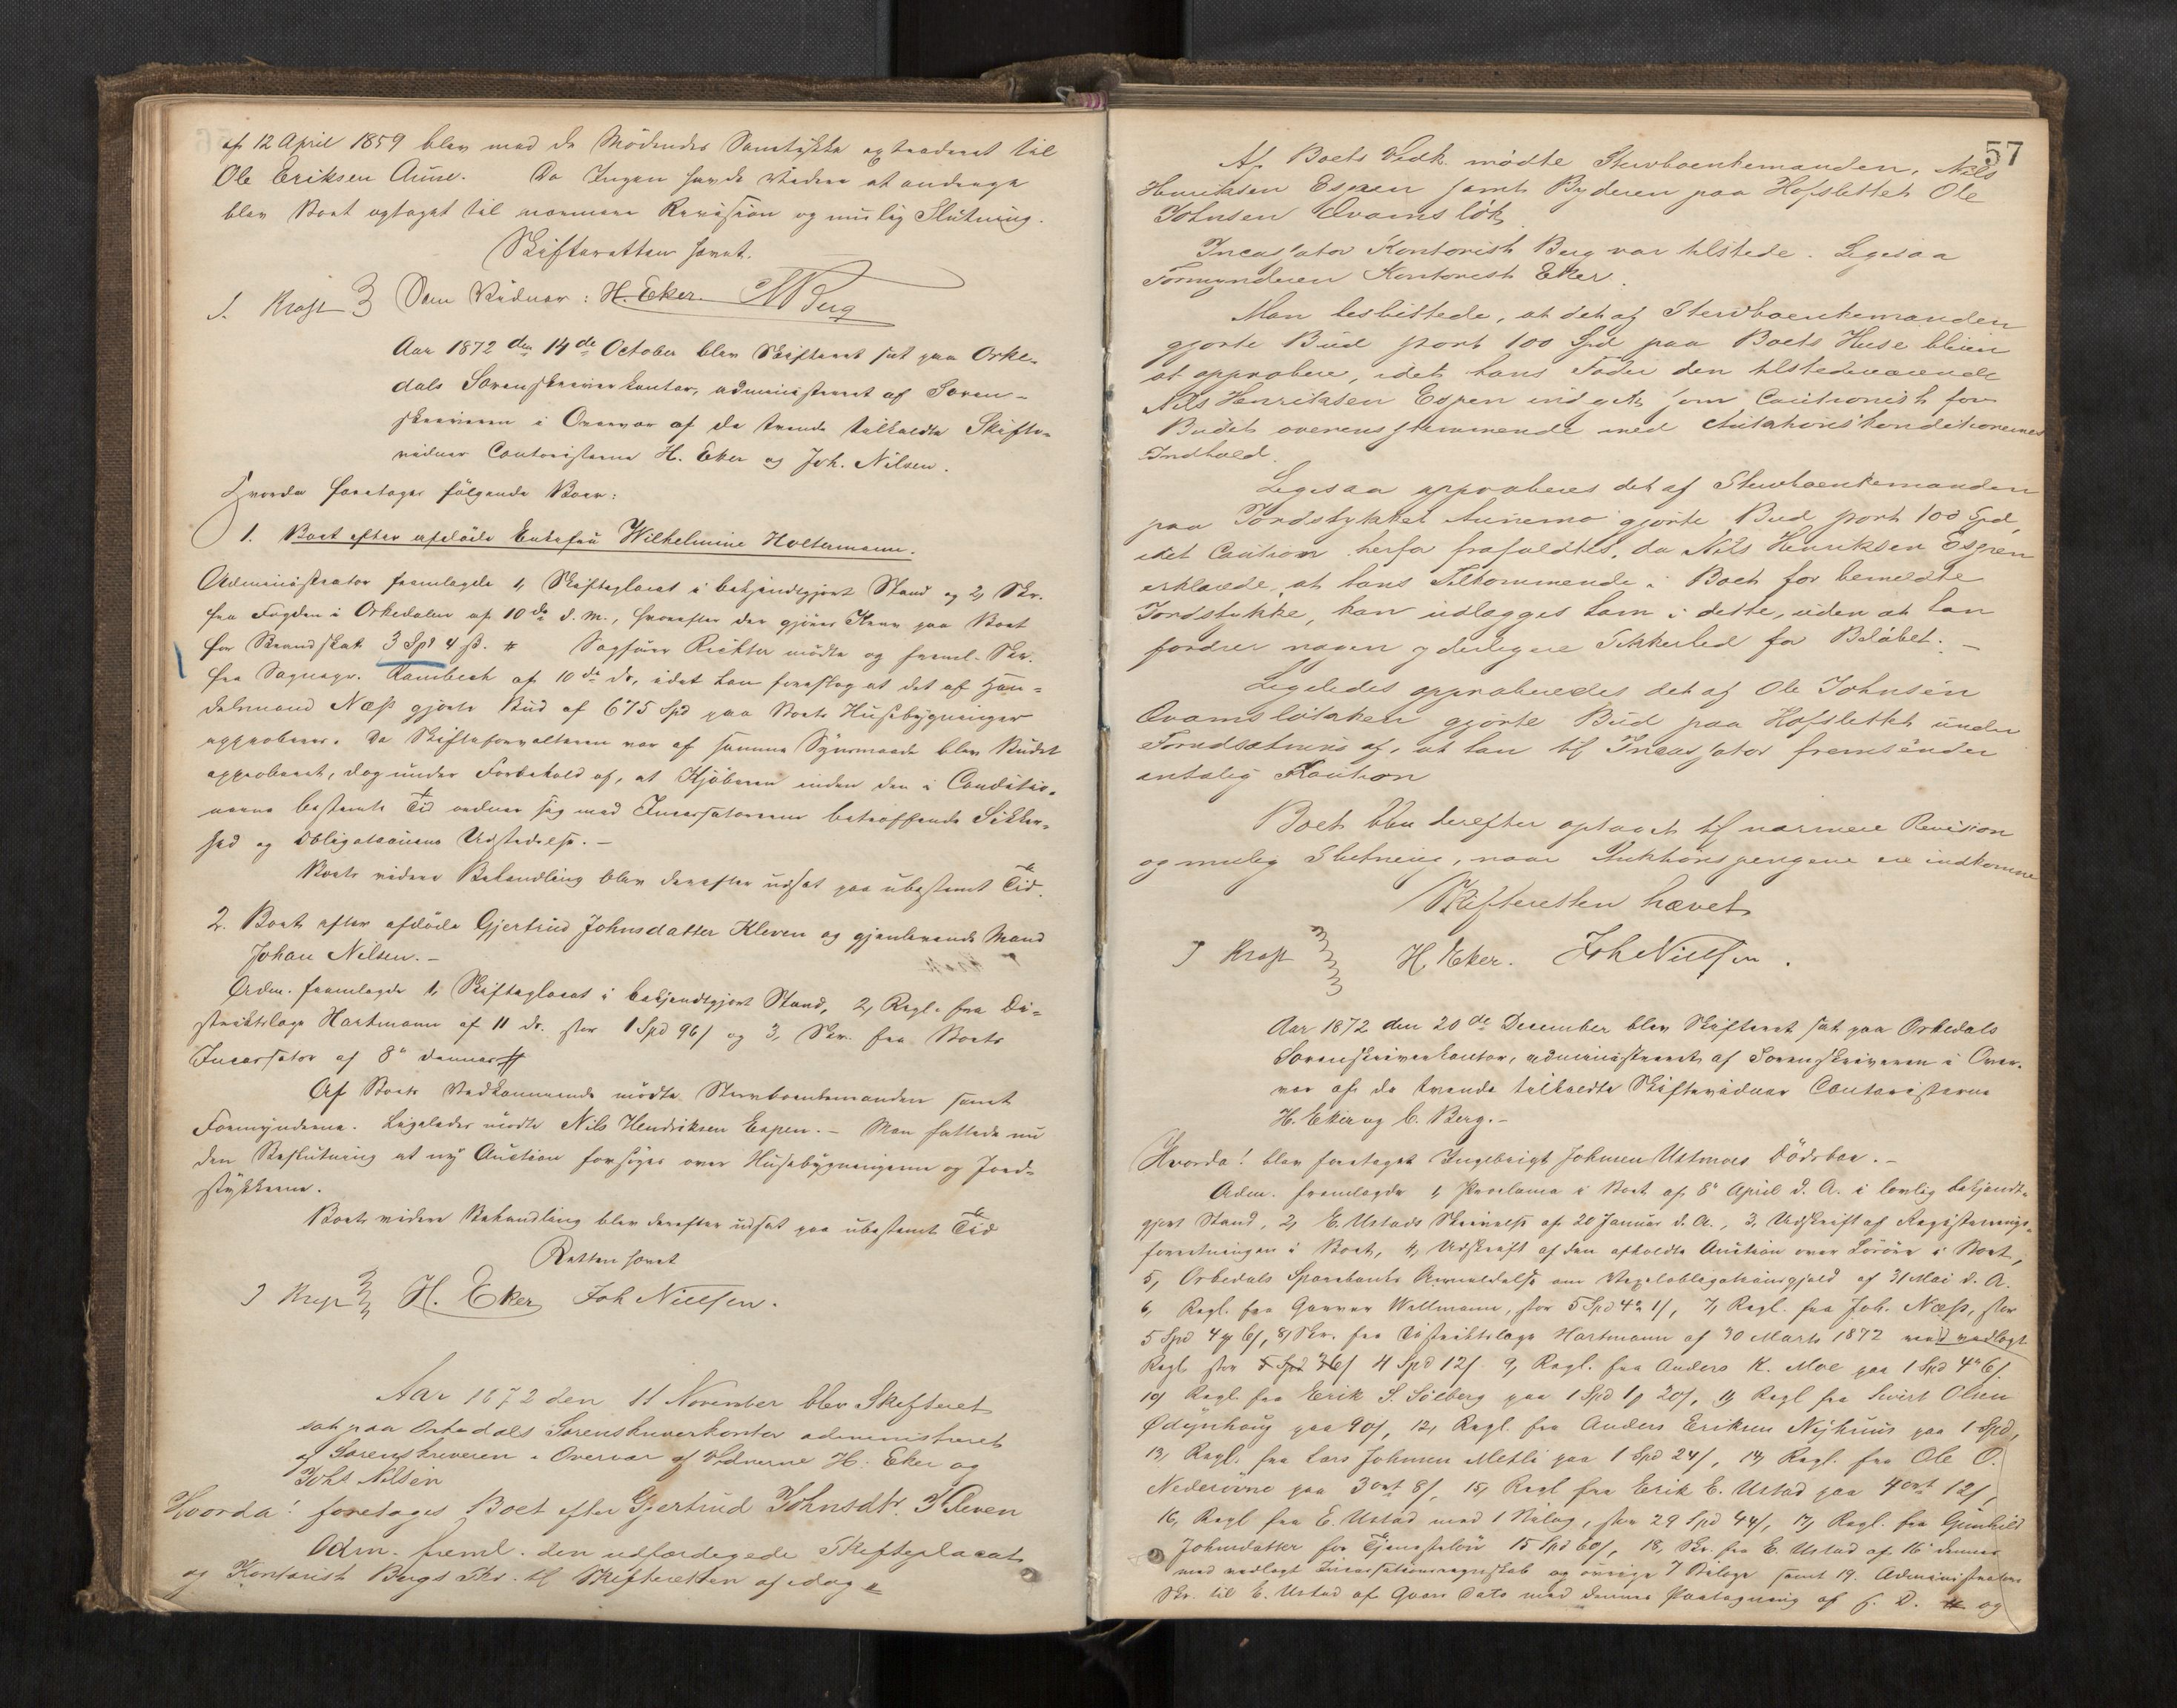 af 12 April 1859 blev med de Mødendes Samtykke extraderet til
Ole Eriksen Aune. Da Ingen havde videre at andrage
blev Boet optaget til nærmere Revision og mulig Slutning.
Skifteretten hævet.
J. Krag Som Vidner: H. Eker. Berg
Aar 1872 den 14de October blev Skifteret sat paa Orke-
dals Sorenskriverkontor, administreret af Soren-
skriveren i Overvær af de tvende tilkaldte Skifte-
vidner Contoristerne H. Eker og Joh. Nilsen.
Hvorda foretoges følgende Boer:
1. Boet efter afdøde Enkefru Wilhelmine Holtermann.
Administrator fremlagde 1, Skifteplacat i bekjendtgjort Stand og 2, Skr.
fra Fogden i Orkedalen af 10de d. M., hvorefter der gjøres Krav paa Boet
for Brandskat 3 Spd 4 ß. Sagfører Richter mødte og freml. Skr.
fra Sagfører Rambech af 10de ds., idet han foreslog at det af Han-
delsmand Næss gjorte Bud af 675 Spd paa Boets Husebygninger
approberes. Da Skifteforvalteren var af samme Synsmaade blev Budet
approberet, dog under Forbehold af, at Kjøberen inden den i Conditio-
nerne bestemte Tid ordner sig med Incassatoren betræffende Sikker-
hed og Obligationens Udstedelse. -
Boets videre Behandling blev derefter udsat paa ubestemt Tid.
2. Boet efter afdøde Gjertrud Johnsdatter Kleven og gjenlevende Mand
Johan Nilsen. -
Adm. fremlagde 1, Skifteplacat i bekjendtgjort Stand, 2, Regn. fra Di-
striktslæge Hartmann af 11 ds. stor 1 Spd 96 ß og 3, Skr. fra Boets
Incassator af 8de dennes
Af Boets Vedkommende mødte Stervboenkemanden samt
Formynderne. Ligeledes mødte Nils Hendriksen Espen. - Man fattede nu
den Beslutning at ny Auction forsøges over Husebygningerne og Jord-
stykkerne.
Boets videre Behandling blev derefter udsat paa ubestemt Tid
Retten hævet
J Krag H. Eker Joh Nielsen.
Aar 1872 den 11 November blev Skifteret
sat paa Orkedals Sorenskriverkontor administreret
af Sorenskriveren i Overvær af Vidnerne H. Eker og
Johs Nilsen
Hvorda! foretoges Boet efter Gjertrud Johnsdtr. Kleven
Adm. freml. den udfærdigede Skifteplacat
og Kontorist Bergs Skr. til Skifteretten af idag
57
Af Boets Vedk. mødte Stervboenkemanden, Nils
Henriksen Espen samt Byderen paa Hofslettet Ole
Johnsen Qvamsløk
Incassator Kontorist Berg var tilstede. Ligesaa
Formynderen Kontorist Eker.
Man besluttede, at det af Stervboenkemanden
gjorte Bud stort 100 Spd paa Boets Huse bliver
at approbere, idet hans Fader den tilstedeværende
Nils Henriksen Espen indgik som Cautionist for
Budet overensstemmende med Auktionskonditionernes
Indhold.
Ligesaa approberes det af Stervboenkemanden
paa Jordstykket Aunemo gjorte Bud stort 100 Spd,
idet Caution herfor frafaldtes, da Nils Henriksen Espen
erklærede, at hans Tilkommende i Boet for bemeldte
Jordstykke, kan udlægges ham i dette, uden at han
fordrer nogen yderligere Sikkerhed for Beløbet. -
Ligeledes approberedes det af Ole Johnsen
Qvamsløkken gjorte Bud paa Hofslettet under
Forudsætning af, at han til Incassator fremsender
antagelig Kaution
Boet blev derefter optaget til nærmere Revision
og mulig Slutning, naar Auktionspengene ere indkomne
Skifteretten hævet
J Krag H. Eker. Joh Nielsen.
Aar 1872 den 20de December blev Skifteret sat paa Orkedals
Sorenskriverkontor, administreret af Sorenskriveren i Over-
vær af de tvende tilkaldte Skiftevidner Contoristerne
H. Eker og C. Berg. -
Hvorda! blev foretaget Ingebrigt Johnsen Ustmoes Dødsbo. -
Adm. fremlagde 1, Proclama i Boet af 8de April d. A. i lovlig bekjendt-
gjort Stand, 2, E. Ustads Skrivelse af 20 Januar d. A., 3, Udskrift af Registrerings-
forretningen i Boet, 4, Udskrift af den afholdte Auction over Løsøre i Boet,
5, Orkedals Sparebanks Anmeldelse om Vexelobligationsgjæld af 31 Mai d. A.
6, Regn. fra Garver Wullmann, stor 5 Spd 4 1 ß, 7, Regn. fra Joh. Næss, stor
5 Spd 4 6 ß, 8, Skr. fra Distriktslæge Hartmann af 30 Marts 1872 med vedlagt
Regn. stor 5 Spd 36 ß 4 Spd 12 ß. 9, Regn. fra Anders K. Moe paa 1 Spd 4 6 ß.
10, Regn. fra Erik S. Solberg paa 1 Spd 1 20 ß, 11, Regn fra Sivert Olsen
Ødynhaug paa 90 ß, 12, Regn. fra Anders Eriksen Nyhuus paa 1 Spd,
13, Regn. fra Lars Johnsen Metli paa 1 Spd 24 ß, 14, Regn. fra Ole O.
Nederøvne paa 3 ort 8 ß, 15, Regn fra Erik E. Ustad paa 4 ort 12 ß,
16, Regn fra E. Ustad med 1 Bilag, stor 29 Spd 44 ß, 17, Regn. fra Gunhild
Johnsdatter for Tjenesteløn 15 Spd 60 ß, 18, Skr. fra E. Ustad af 16 dennes
med vedlagt Incassationsregnskab og øvrige 7 Bilage samt 19. Administrators
Skr. til E. Ustad af Gaars Dato med dennes Paategning af s. D. og